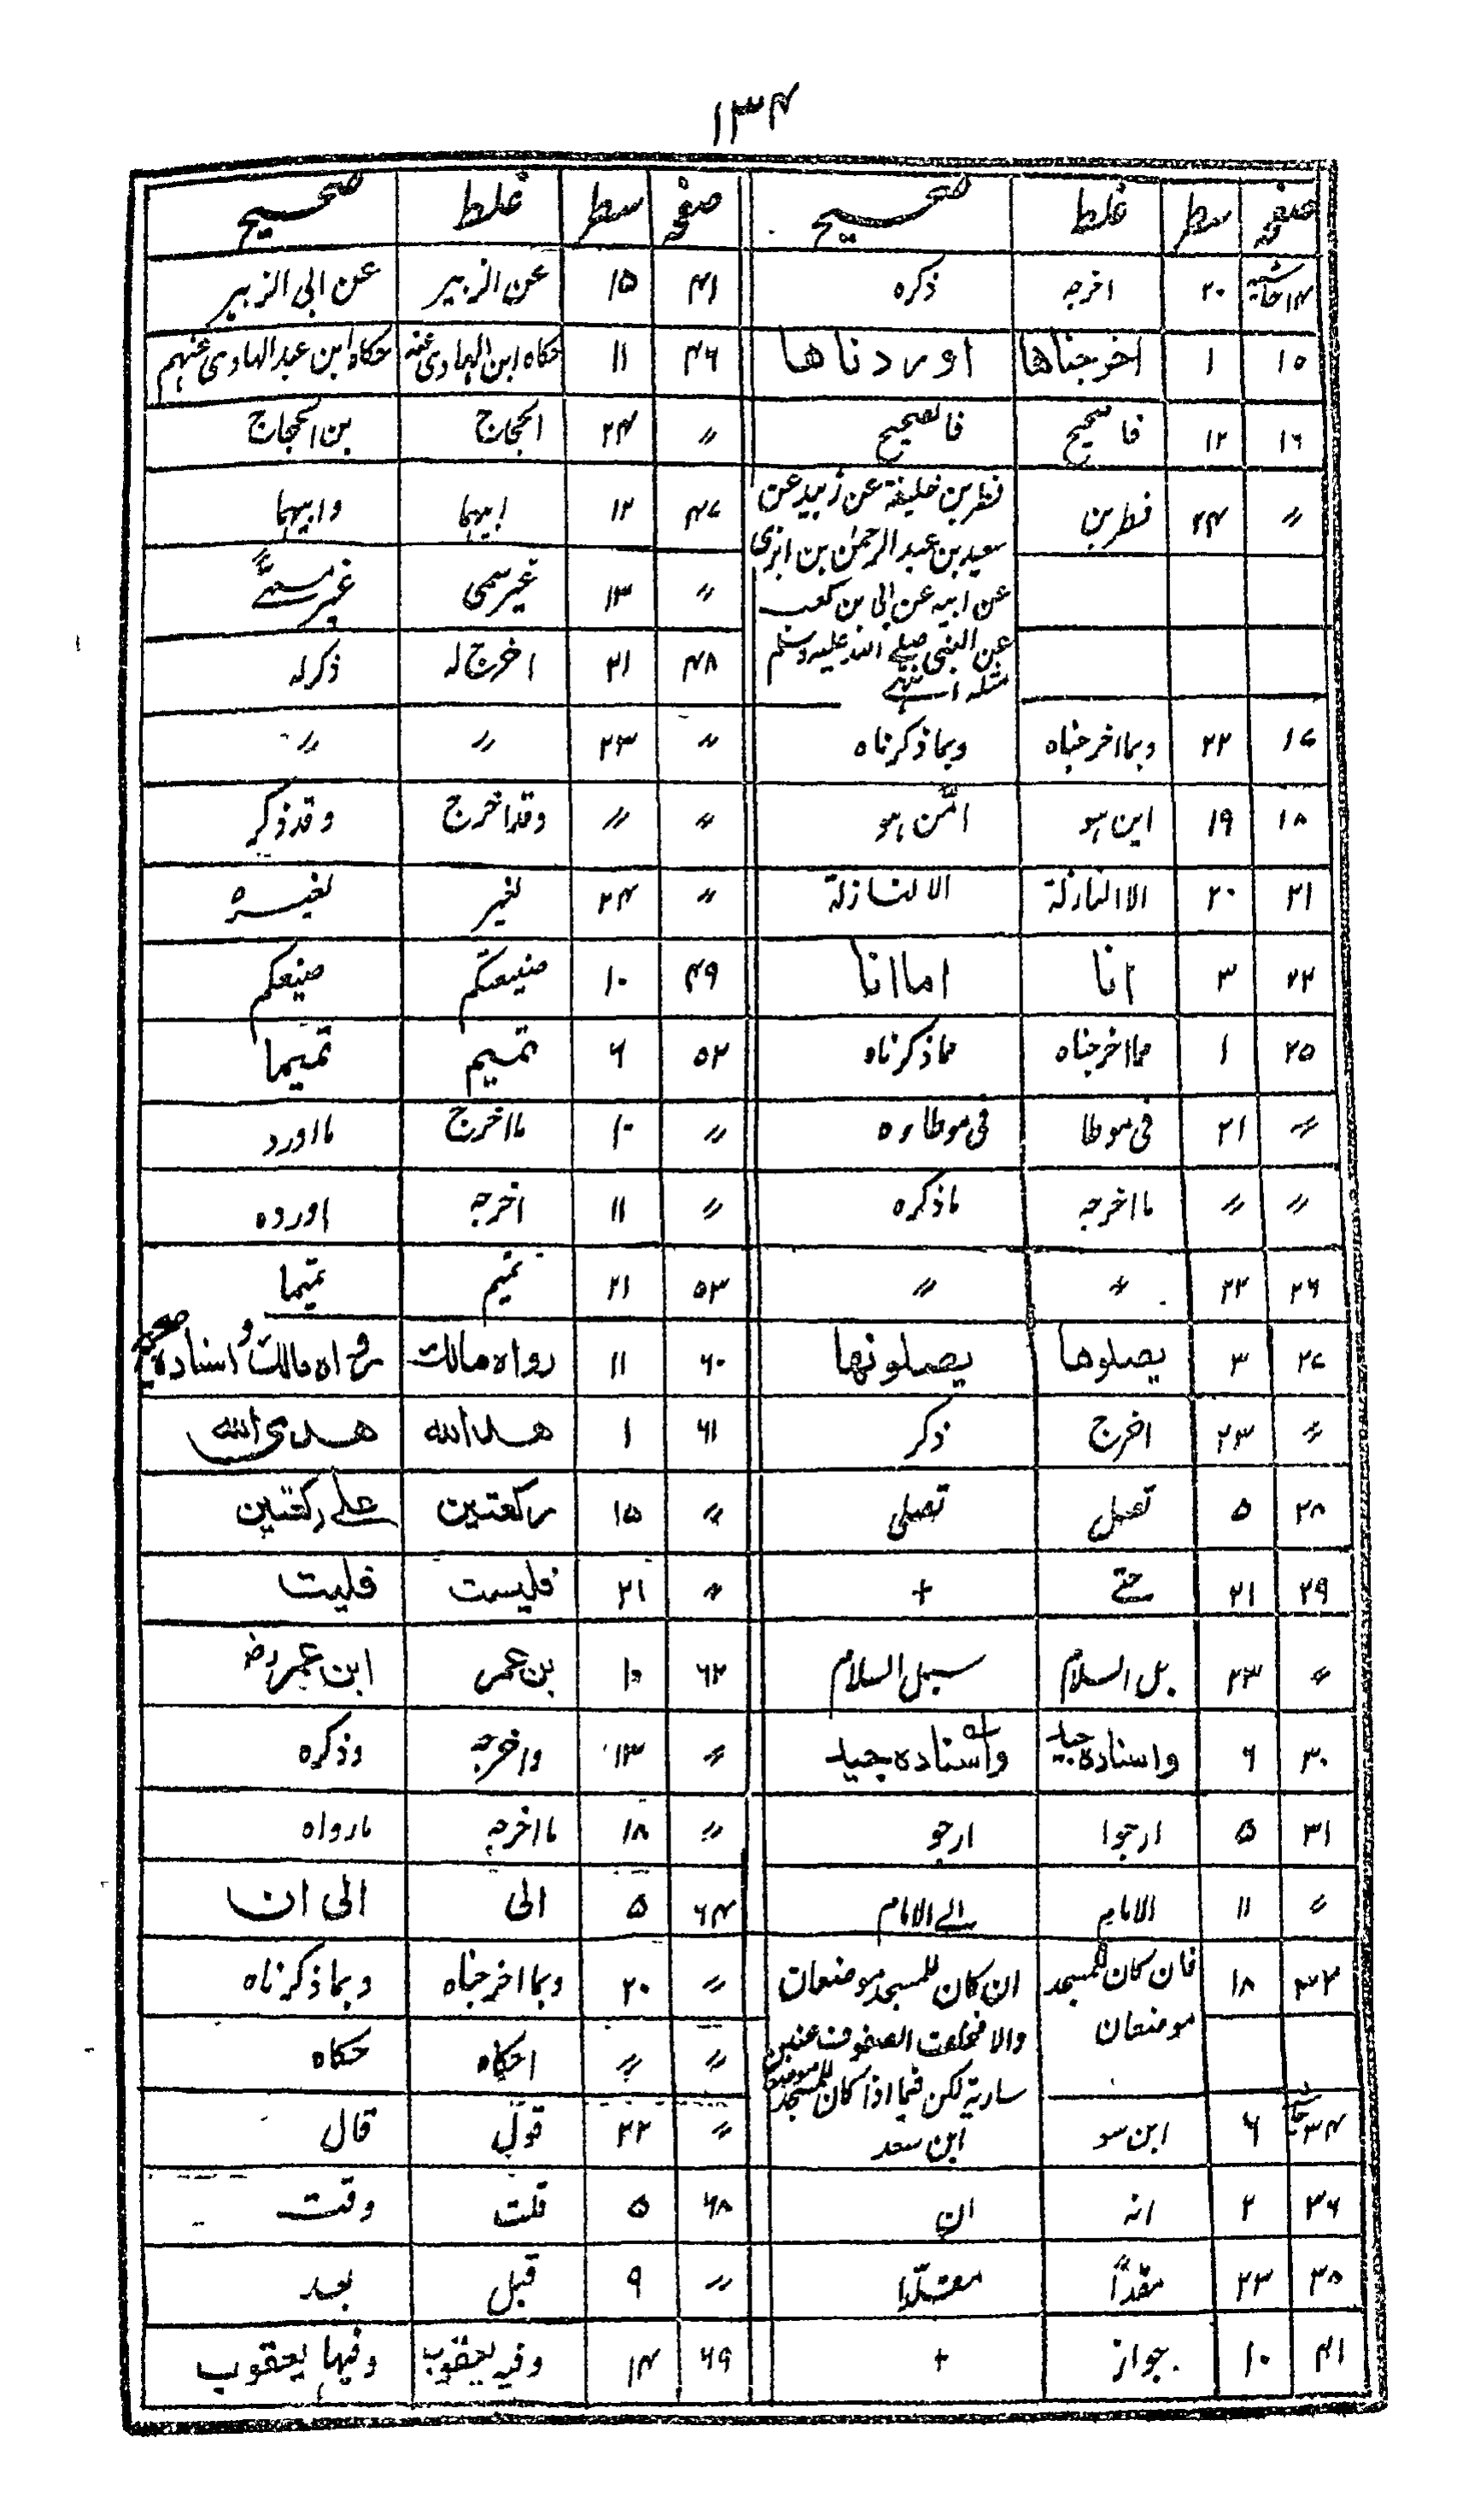 ۱۳۴
صفحہ سطر غلط صحیح
۱۴ حاشیہ ۲۰ اخرجہ ذکرہ
۱۵ ۱ اخرجناها اوردناها
۱۶ ۱۲ فاصحیح فالصحیح
〃 ۲۴ فطربن فطربن خلیفة عن زبید عن
سعید بن عبد الرحمٰن بن ابزی
عن ابیہ عن ابی بن کعب
عن النبی صلے اللہ علیہ وسلم
مثلہ انتہے
۱۷ ۲۲ وبما اخرجناہ وبما ذکرناہ
۱۸ ۱۹ این ہو امّن ہو
۲۱ ۲۰ الا النازلة الا لنازلة
۲۲ ۳ انا اما انا
۲۵ ۱ مما اخرجناہ مما ذکرناہ
〃 ۲۱ فی موطا فی موطاوہ
〃 〃 ما اخرجہ ما ذکرہ
۲۶ ۲۲ 〃 〃
۲۷ ۳ یصلوها یصلونها
〃 ۲۳ اخرج ذکر
۲۸ ۵ تصل تصلی
۲۹ ۲۱ حتے +
〃 ۲۳ بل السلام سبل السلام
۳۰ ۶ واسنادہ جید واسنادہ جید
۳۱ ۵ ارجوا ارجو
〃 ۱۱ الامام الے الامام
۳۲ ۱۸ فان کان للمسجد موضعان ان کان للمسجد موضعان
والا فخلف الصفوف عند
ساریة لکن فیما اذا کان للمسجد
۳۴ حاشیہ ۶ ابن سو ابن سعد
۳۶ ۲ انہ ان
۳۸ ۲۳ مقدًا
۴۱ ۱۰ جواز +
صفحہ سطر غلط صحیح
۴۱ ۱۵ عن الزبیر عن ابی الزبیر
۴۶ ۱۱ حکاہ ابن الہادی عنہ حکاہ ابن عبد الہادی عنہم
〃 ۲۴ الحجاج بن الحجاج
۴۷ ۱۲ ایہما وایہما
〃 ۱۳ غیر سمی غیر مسمےً
۴۸ ۲۱ اخرج لہ ذکر لہ
〃 ۲۳ 〃 〃
〃 〃 وقد اخرج وقد ذکر
〃 ۲۴ لغیر لغیرہ
۴۹ ۱۰ صنیعتکم صنیعکم
۵۲ ۶ تمیم تمیما
〃 ۱۰ ما اخرج ما اورد
〃 ۱۱ اخرجہ اوردہ
۵۳ ۲۱ تمیم تمیما
۶۰ ۱۱ رواہ مالك رواہ مالك واسنادہ صحیح
۶۱ ۱ هدالله هدی الله
〃 ۱۵ رکعتین علے رکعتین
〃 ۲۱ فلیست فلیت
۶۲ ۱۰ بن عمر ابن عمر رض
〃 ۱۳ واخرجہ وذکرہ
〃 ۱۸ ما اخرجہ مارواہ
۶۴ ۵ الی الی ان
〃 ۲۰ وبما اخرجناہ وبما ذکرناہ
〃 〃 احکاہ حکاہ
〃 ۲۲ قول قال
۶۸ ۵ قلت وقت
〃 ۹ قبل بعد
۶۹ ۱۴ وفیہ یعقوب وفیہا یعقوب